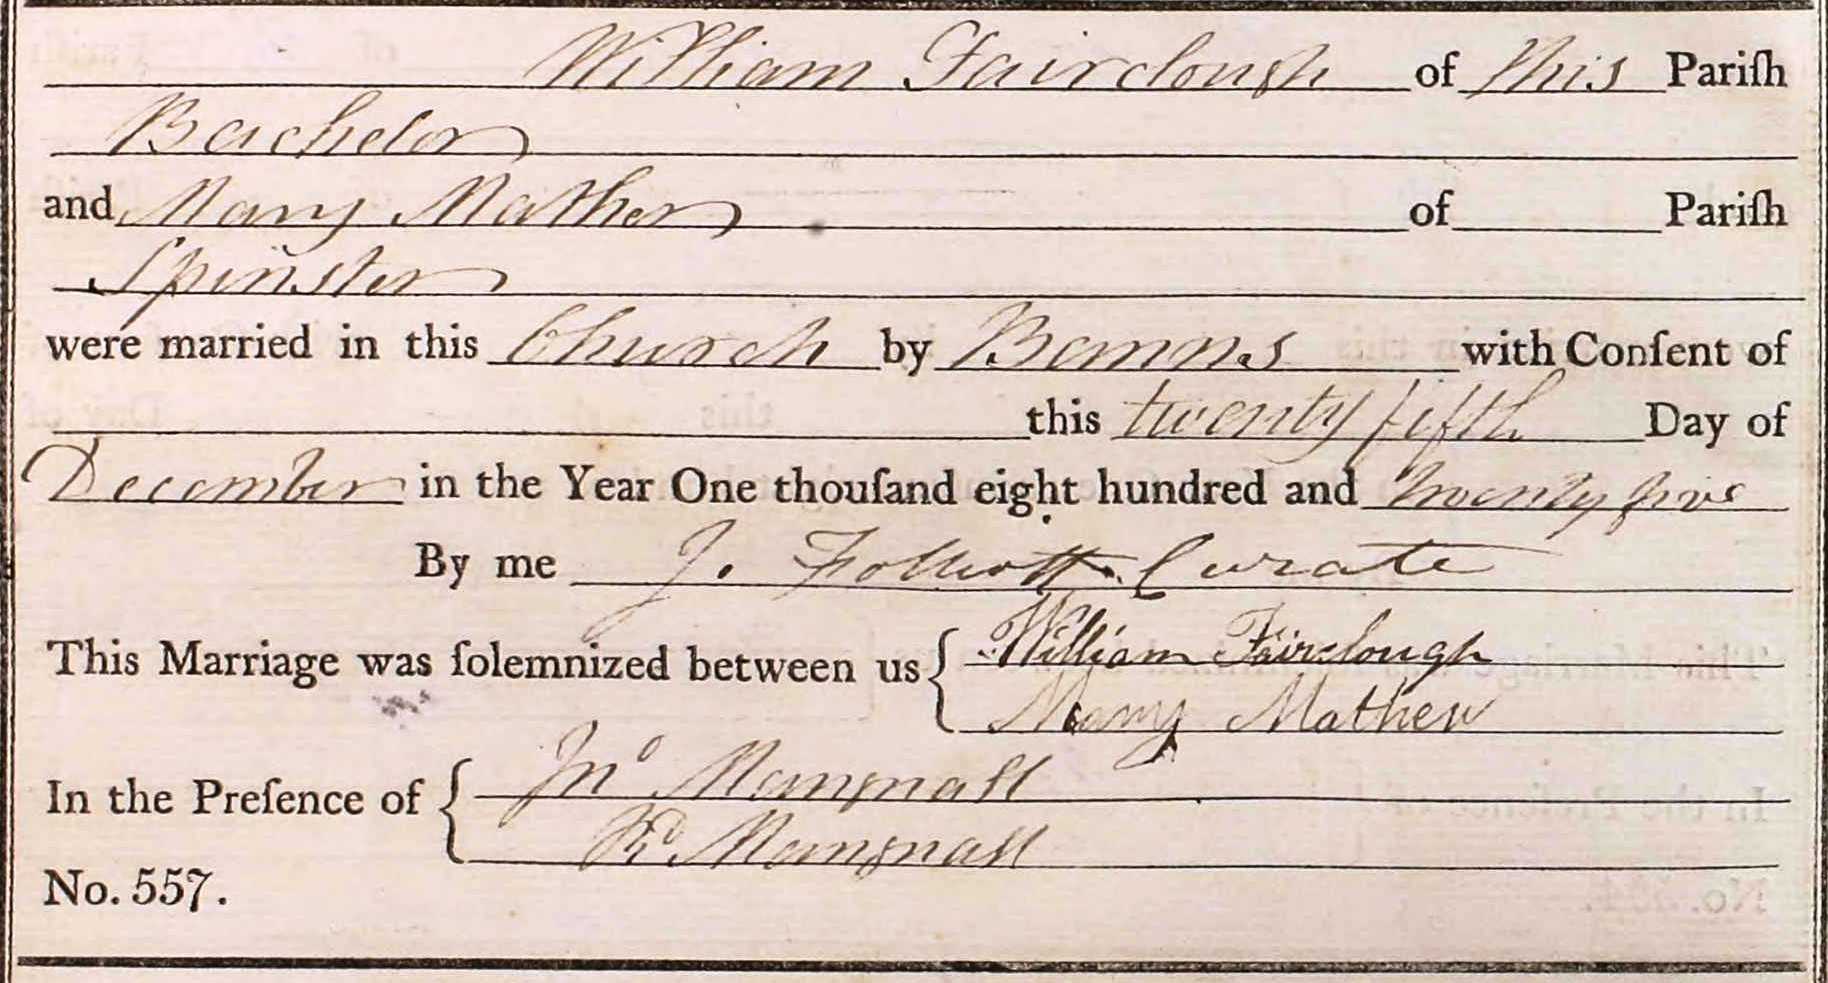 William Fairclough of this Pariſh
Bachelor
and Mary Mather of Pariſh
Spinster
were married in this Church by Banns with Conſent of
this twenty fifth Day of
December in the Year One thouſand eight hundred and twenty five
By me J. Folliott Curate
This Marriage was ſolemnized between us { William Fairclough
Mary Mather
In the Preſence of { Jnº Mangnall
Rd Mangnall
No. 557.